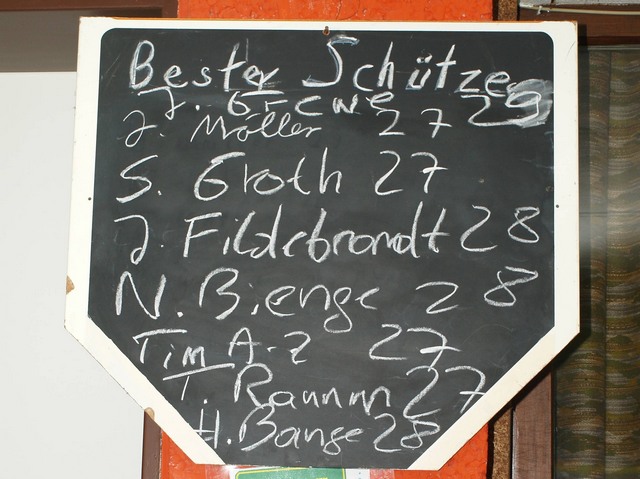 Bester Schütze
J. Grewe 29
J. Möller 27
S. Groth 27
J. Fildebrandt 28
N. Bienge 28
Tim A-Z 27
T. Ramm 27
H. Bange 28